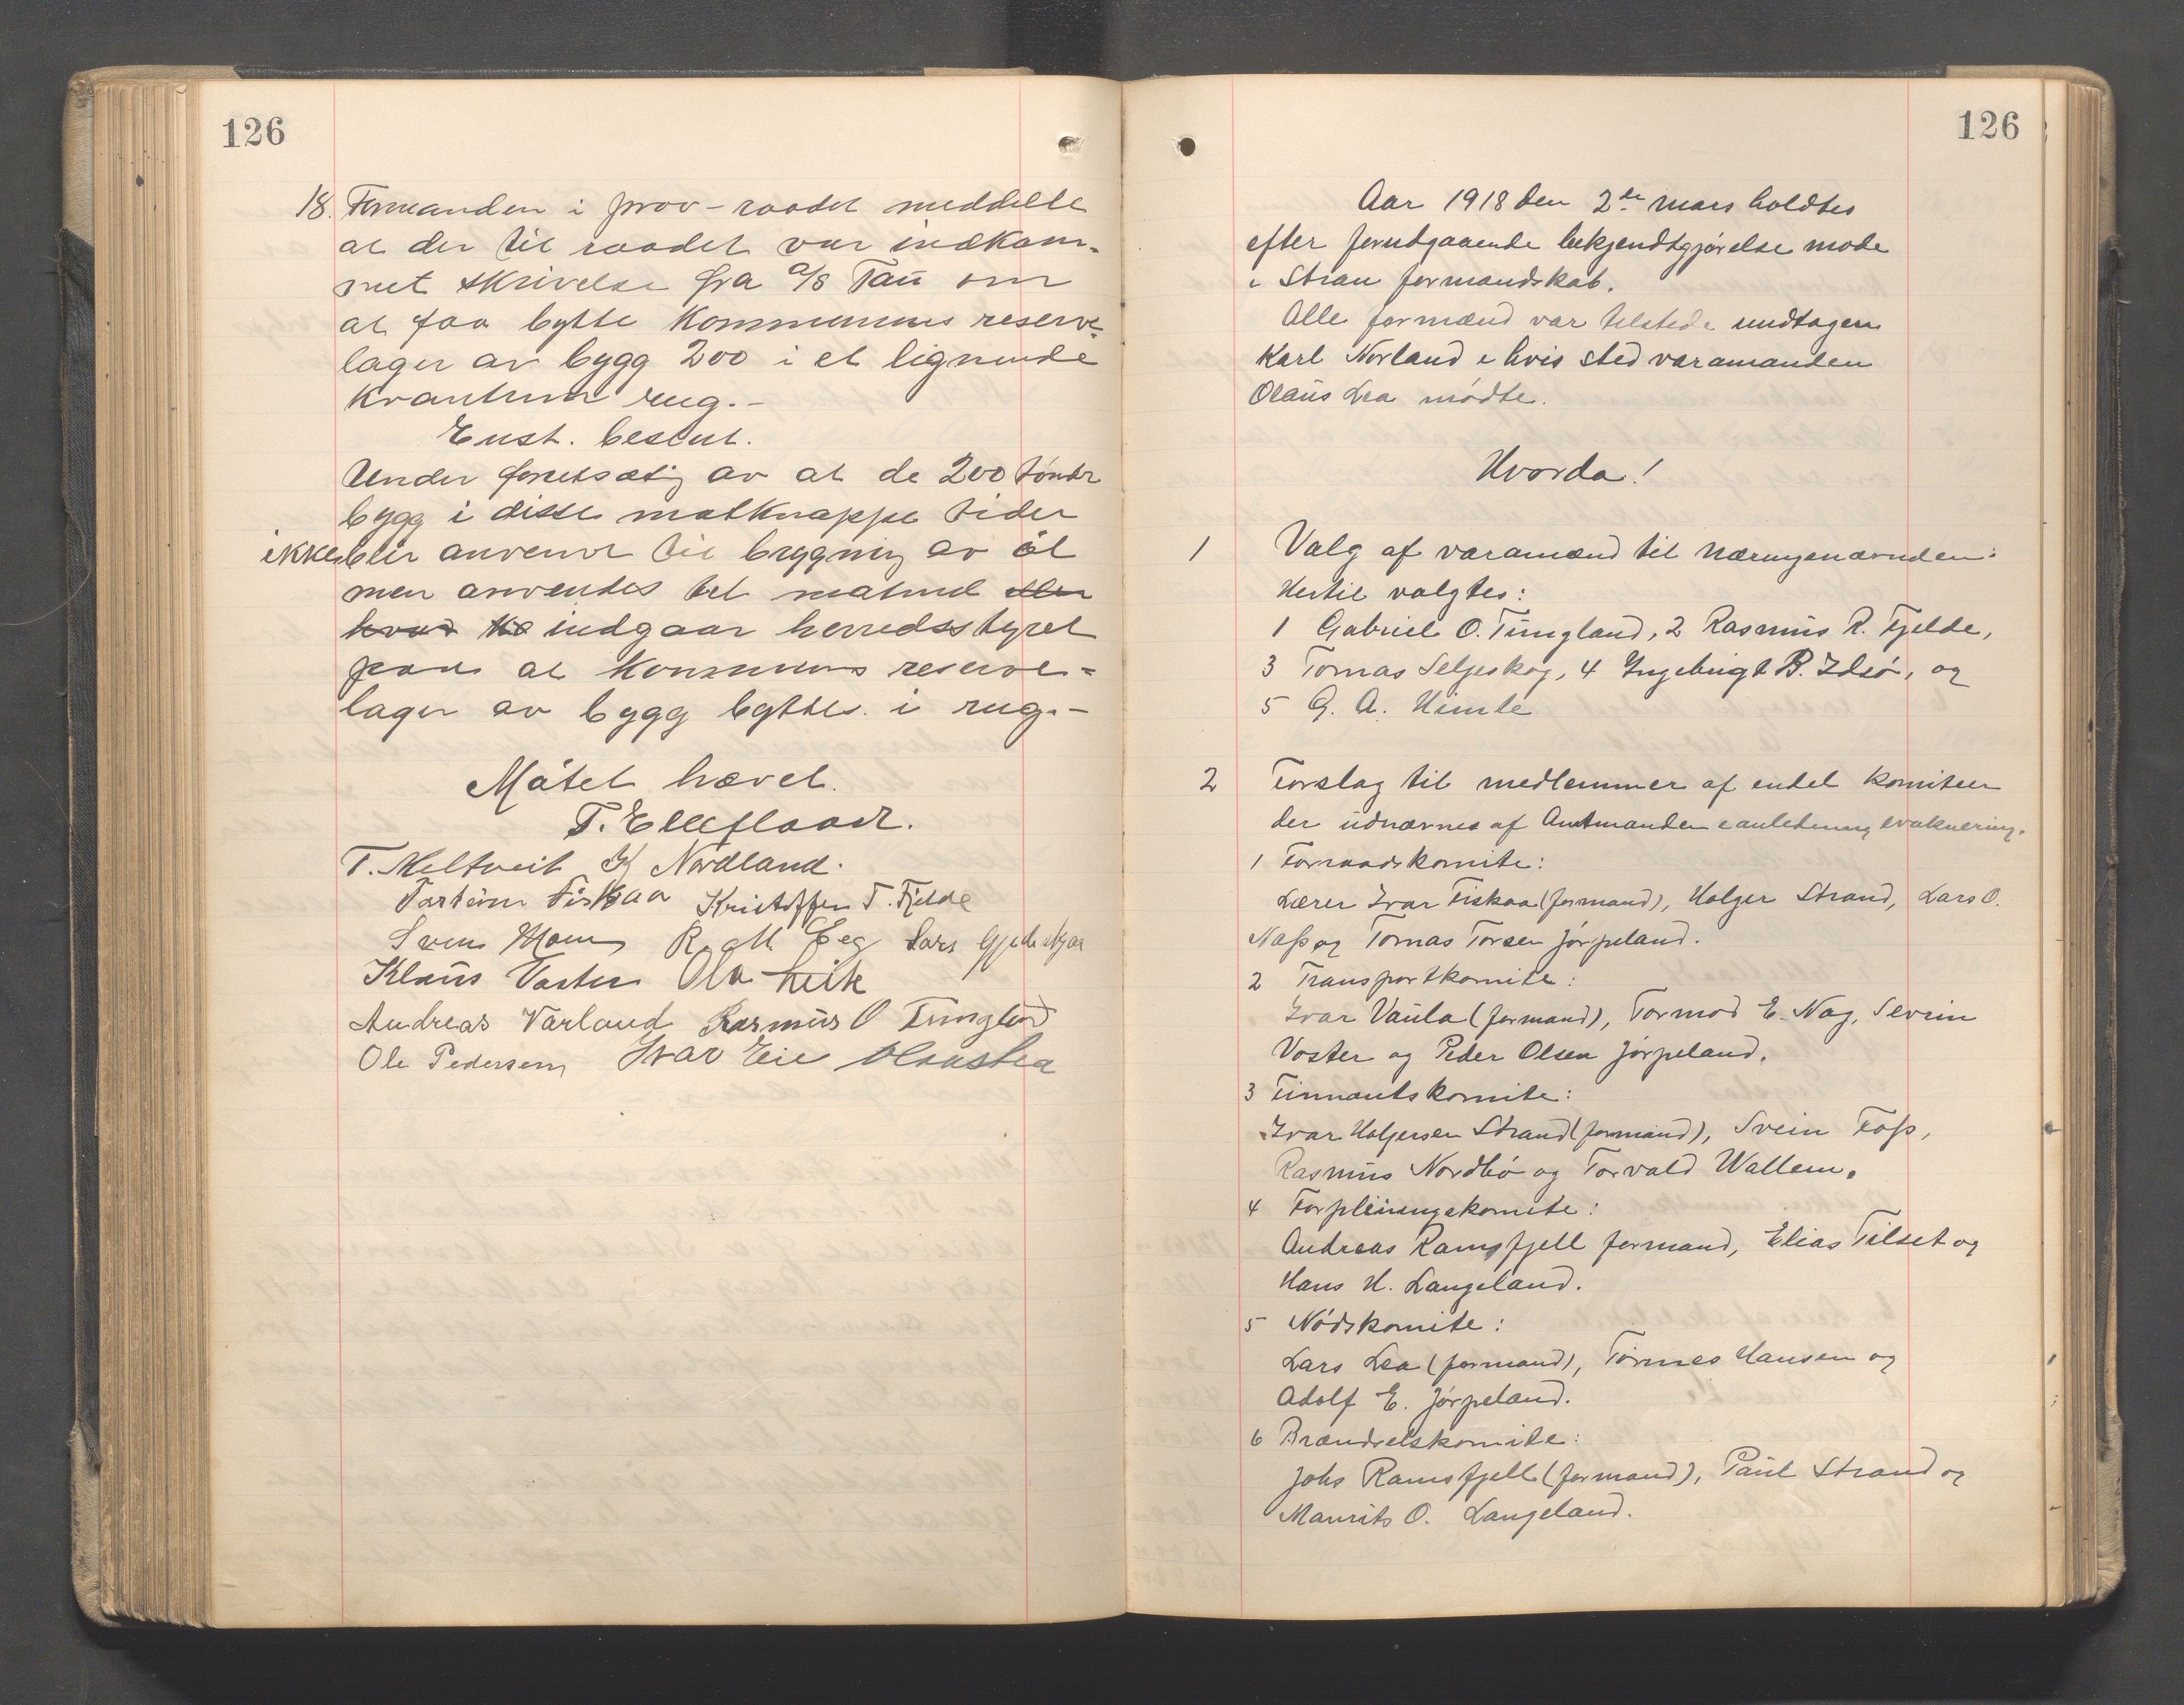 126
18. Formanden i prov-raadet meddelte
at der til raadet var indkom-
met skrivelse fra A/S Tau om
at faa bytte kommunens reserve-
lager av bygg 200 i et lignende
kvantum rug.-
Enst. beslut.
Under forutsætn av at de 200 tøndr
bygg i disse matknappe tider
ikke blir anvendt til brygning av øl
men anvendes til matmel eller
hvad indgaar herredsstyret
paa at kommunens reserve-
lager av bygg byttes i rug.-
Møtet hævet.
T. Elleflaadt.
T. Meltveit K Nordland.
Torstein Fiskaa Kristoffer T. Fjelde
Sven R. M. Eeg Lars
Klaus Voster Ola Leite
Andreas Varland Rasmus O Tungland
Ole Pedersen Ivar Eie Olaus Lea
126
Aar 1918 den 2de mars holdtes
efter forutgaaende bekjendtgjørelse møde
i Stran formandskab.
Alle formænd var tilstede undtagen
Karl Norland i hvis sted varamanden
Olaus Lea mødte.
Hvorda!
1 Valg af varamænd til næringsnævnden:
Hertil valgtes:
1 Gabriel O. Tungland, 2 Rasmus R. Fjelde,
3 Tomas Seljeskog, 4 Ingebrigt B. Idsø, og
5 G. A. Himle
2 Forslag til medlemmer af endel komiteer
der udnævnes af Amtmanden i anledning evakuering.
1 Forraadskomite:
Lærer Ivar Fiskaa (formand), Holger Strand, Lars O.
Næss og Tomas Torsen Jørpeland.
2 Transportkomite:
Ivar Vaula (formand), Tormod E. Nag, Sevrin
Voster og Peder Olsen Jørpeland.
3 Finnantskomite:
Ivar Holgersen Strand (formand), Svein Foss,
Rasmus Nordbø og Torvald Wallem.
4 Forpleiningskomite:
Andreas Ramsfjell formand, Elias Tilset og
Hans H. Langeland.
5 Nødskomite:
Lars Lea (formand), Tormes Hansen og
Adolf E. Jørpeland.
6 Brændselskomite:
Johs Ramsfjell (formand), Paul Strand og
Maurits O. Langeland.